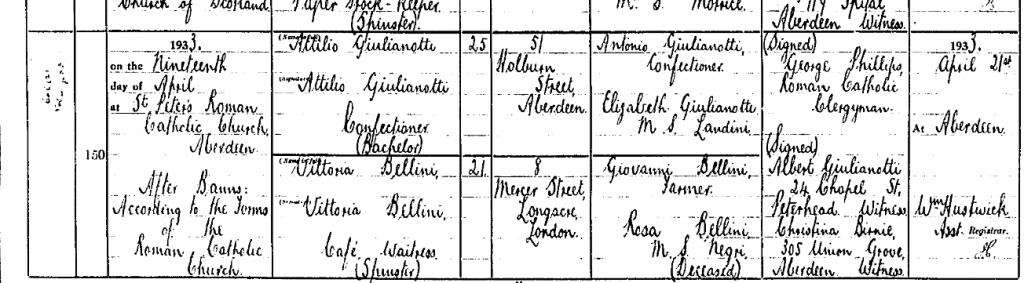 Church of Scotland.
Paper Stock-Keeper
(Spinster)
M. S. Morrice
Aberdeen Witness.
150
1933.
on the Nineteenth
day of April
at St Peter's Roman
Catholic Church,
Aberdeen
After Banns:
According to the Forms
of the
Roman Catholic
Church.
Attilio Giulianotti
Attilio Giulianotti
Confectioner
(Bachelor)
Vittoria Bellini,
Vittoria Bellini,
Café Waitress
(Spinster)
25
21
51
Holburn
Street,
Aberdeen.
8
Mercer Street,
Longacre,
London.
Antonio Giulianotti,
Confectioner.
Elizabeth Giulianotti
M. S. Landini.
Giovanni Bellini,
Farmer.
Rosa Bellini
M. S. Negri
(Deceased)
(Signed)
George Phillips,
Roman Catholic
Clergyman.
(Signed)
Albert Giulianotti
24 Chapel St,
Peterhead Witness.
Christina Birnie,
305 Union Grove,
Aberdeen Witness.
1933.
April 21st
At Aberdeen.
Wm Hustwick
Asst. Registrar.